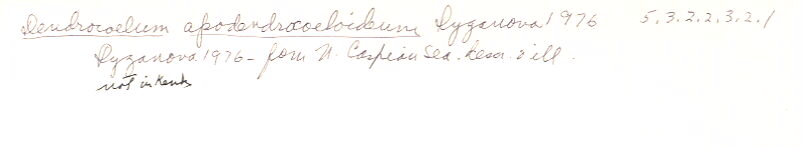 Dendrocoelum apodendrocoeloideum Dyganova 1976 5.3.2.2.3.2.1
Dyganova 1976 - from N. Caspian Sea. descr. & ill.
not in Kenk